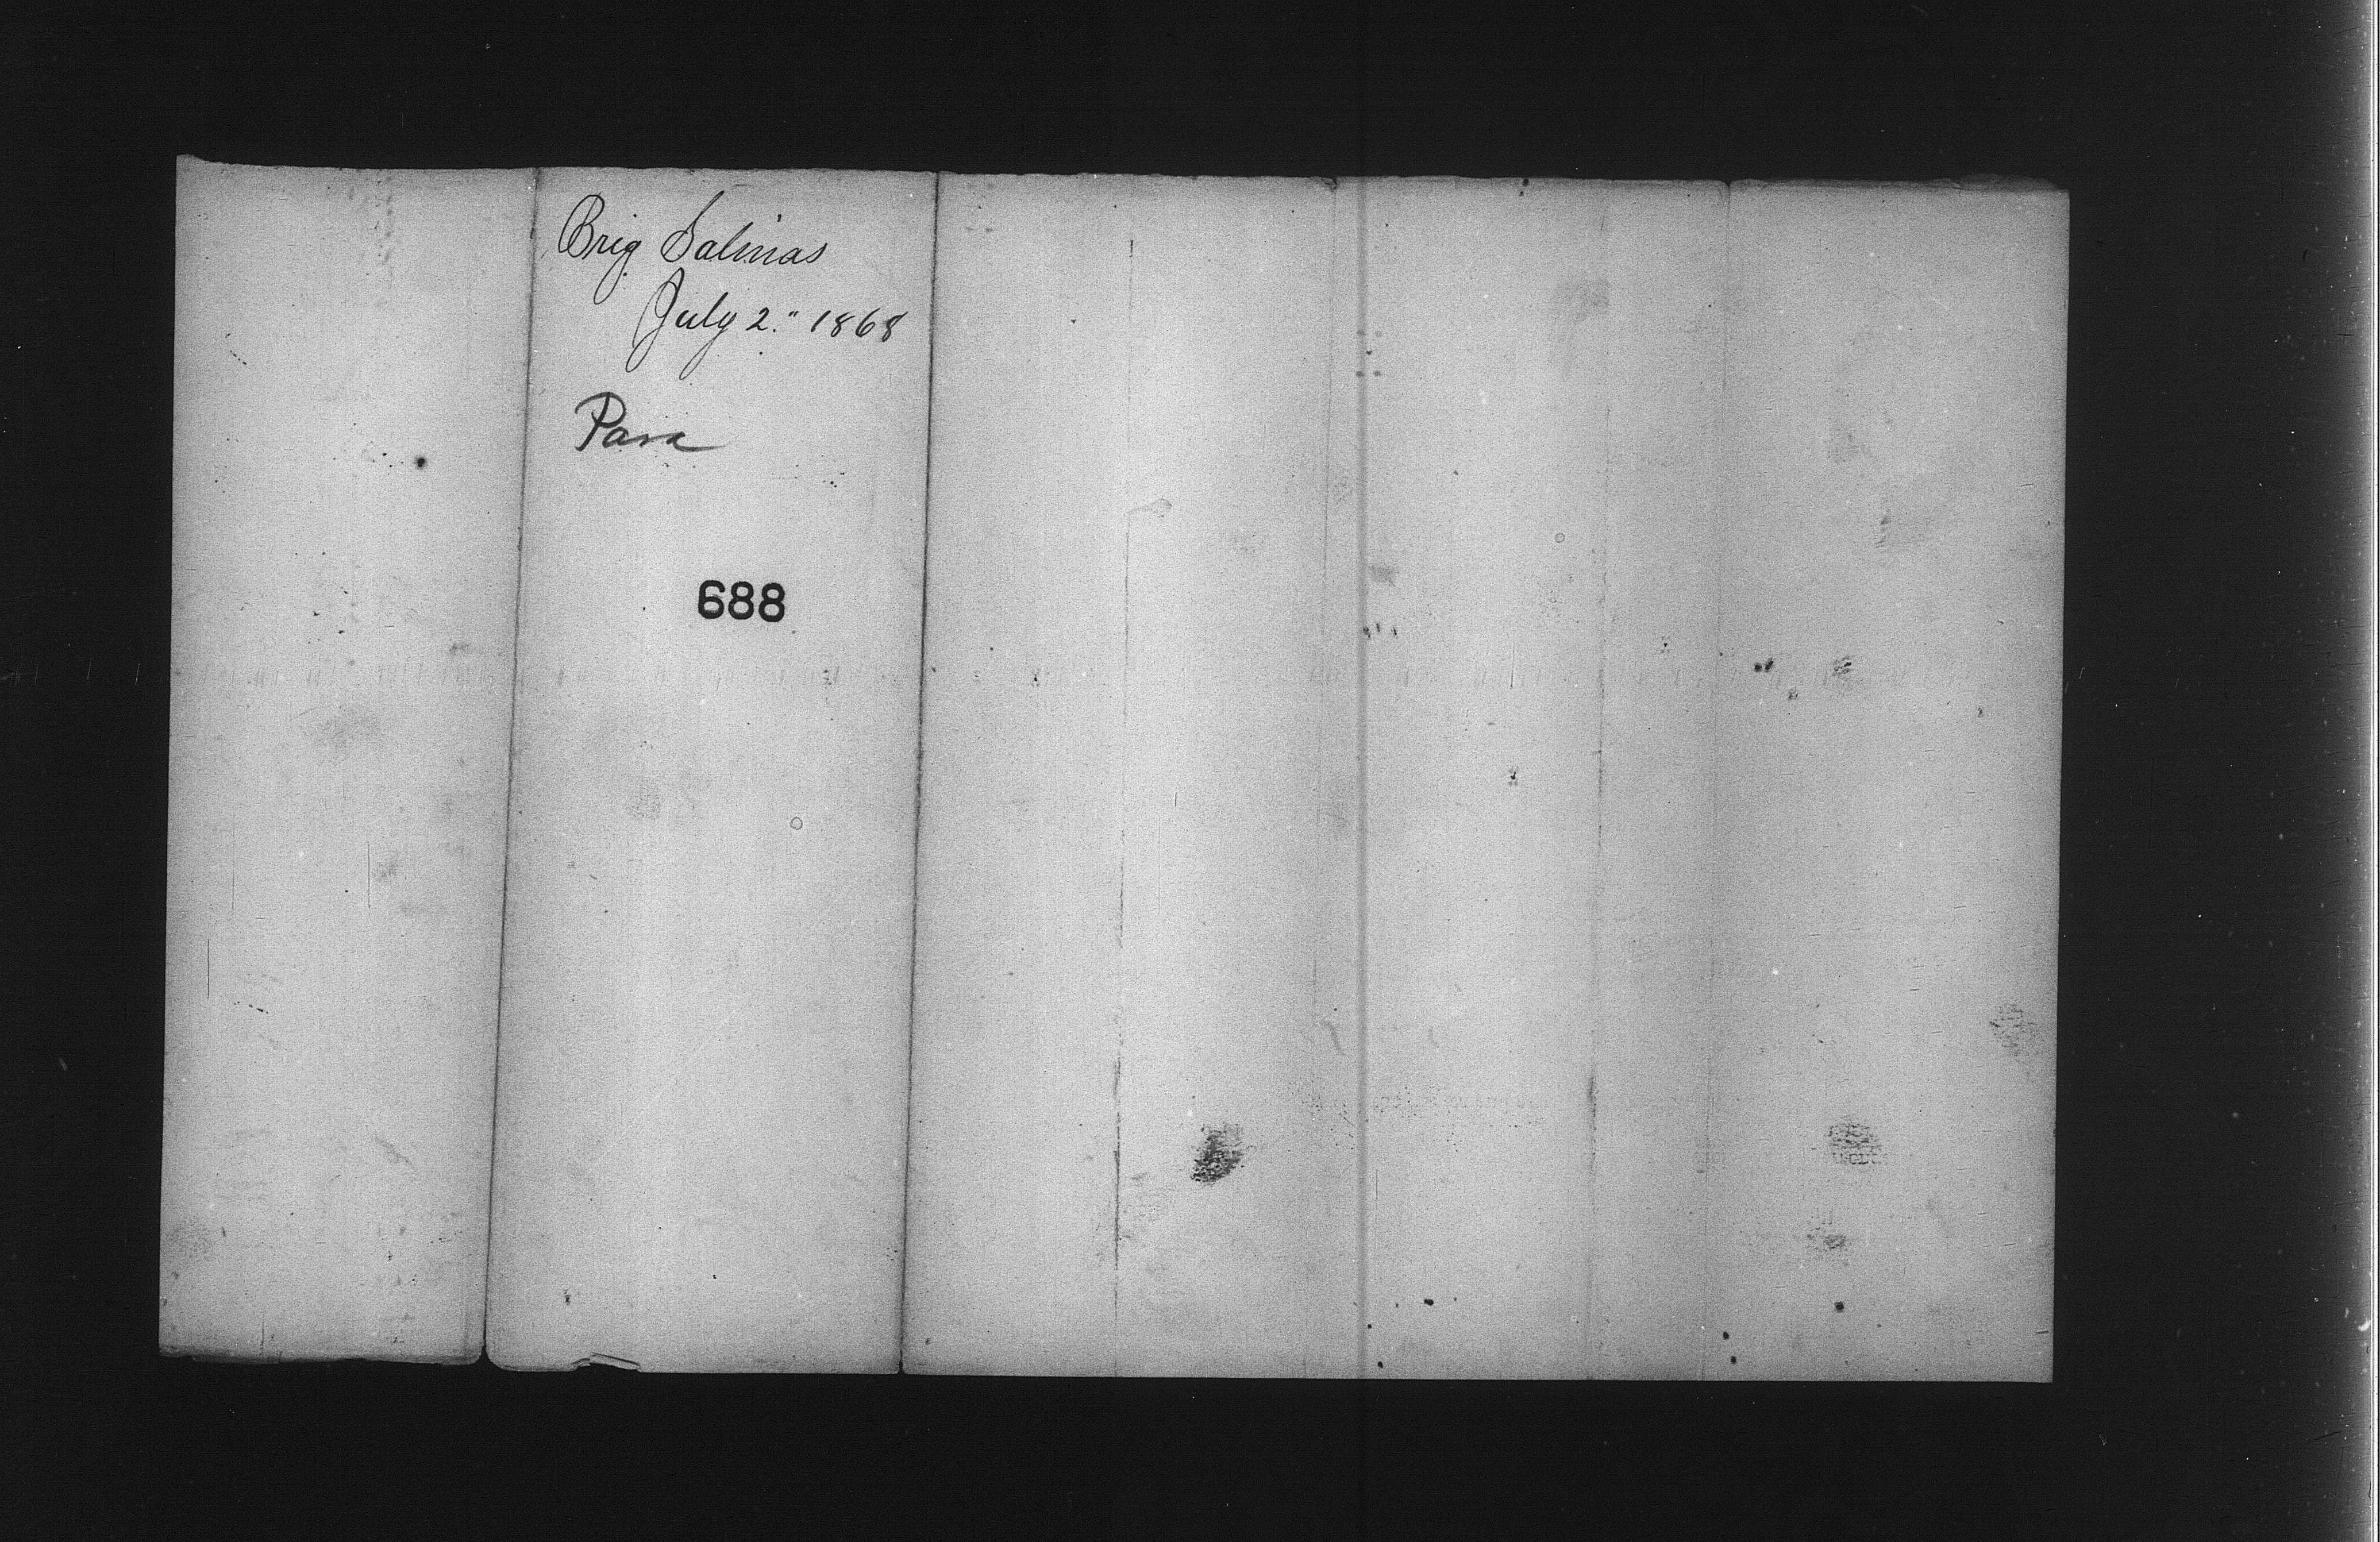 Brig Salinas
July 2." 1868
Para
688